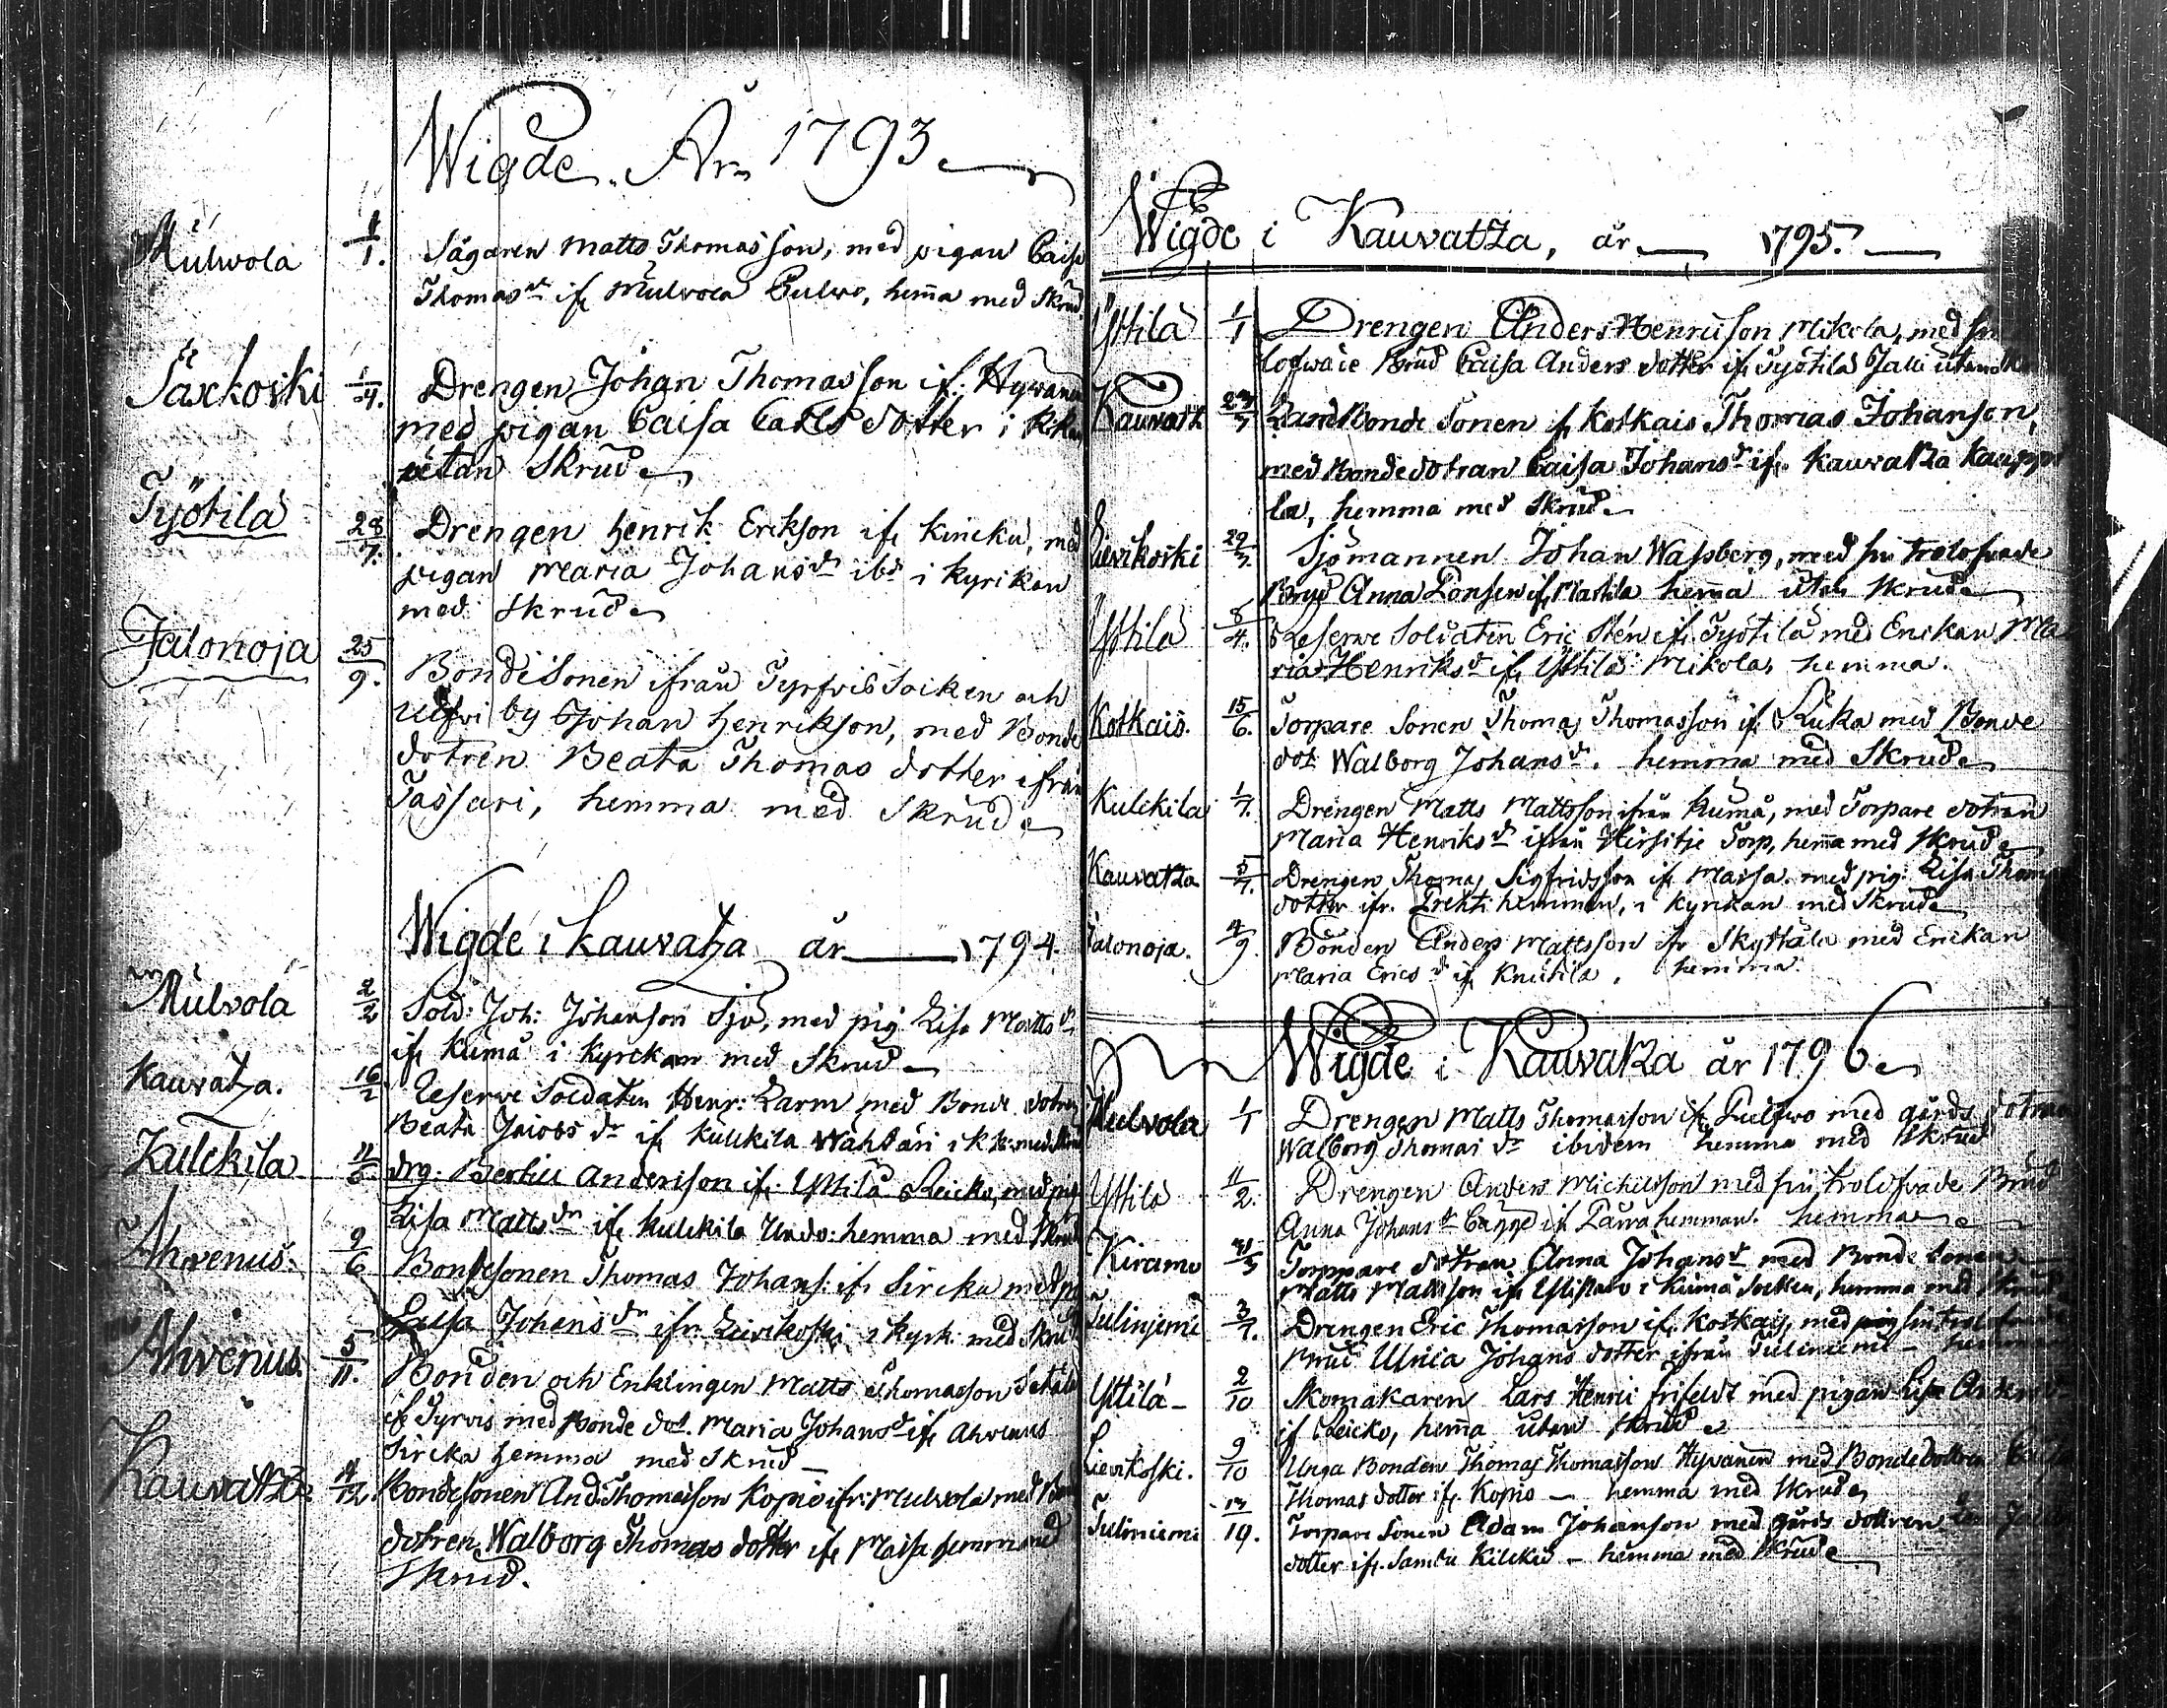 Wigde År 1793
Mulvola 1/1. Sågaren Matts Thomasson, med pigan Caisa
Thomasdr ifr Mulvola Pulwo, hemma med Skrud.
Saxkoski 1/4. Drengen Johan Thomasson ifr. Hyvane
med pigan Caisa Carls dotter i
utan Skrud
Työtilä 28/7. Drengen Henrik Erikson ifr Kincku, med
pigan Maria Johansdr ibd i Kyrikan
med Skrud
Jalonoja 25/9. Bondesonen ifrån Tyrfvis Socken och
by Johan Henrikson, med Bonde
dotren Beata Thomas dotter ifrån
Tassari, hemma med Skrud
Wigde i Kauvatza år 1794.
Mulvola 2/2 Sold: Joh: Johanson Sjö, med pig Lisa Mattsdr
ifr Kumå i Kyrckan med Skrud
Kauvatza. 16/2 Reserve Soldaten Henr: Larm med Bonde dotren
Beata Jacobs dr ifr Kulckila Wähäari i k k: med Skrud
Kulckila drg: Bertill Andersson ifr: Yttilä Reicko, med pig
Lisa Mattsdr ifr Kulckila Undo: hemma med Skrud
Ahvenus 9/6 Bondesonen Thomas Johans: ifr Sircka med
Johansdr ifr: Lievikoski i kyrk: med Skrud
Ahvenus. 5/11. Bonden och Enklingen Matts Thomasson
ifr Tyrvis med Bonde dot. Maria Johansdr ifr Ahvenus
Sircka hemma med Skrud
Kauvatza /12. Bondesonen And: Thomasson Kopio ifr: Mulvola med
dotren Walborg Thomas dotter ifr Maisa hemma med
Skrud.
Wigde i Kauvatza, år 1795.
Yttilä 1/1 Drengen Anders Henricson Mikola, med sin
Brud Caisa Anders dotter ifr Työtilä Jalli utan
Kauvatz Landbonde Sonen ifr Kotkais Thomas Johanson,
med Bondedotran Caisa Johansdr ifr. Kauvatza Kauppi
la, hemma med Skrud
Lievikoski 29/3. Sjömannen Johan Wassberg, med sin trolofvade
Brud Anna ifr Mattila hemma utan Skrud
Yttilä /4. Reserve Soldaten Eric Stén ifr Työtilä med Enckan Ma
ria Henriksdr ifr Yttilä Mikola, hemma.
Kotkais. 15/6. Torpare Sonen Thomas Thomasson ifr med Bonde
dot Walborg Johansdr. hemma med Skrud
Kulckila 1/7. Drengen Matts Mattsson ifrån Kumå, med Torpare dotran
Maria Henriksdr ifrån Torp, hemma med Skrud
Kauvatza 5/7. Drengen Thomas Sigfridsson ifr Maisa med pig: Lisa Thom
dotter ifr. hemman, i Kyrckan med Skrud
Jalonoja. 4/9. Bonden Anders Mattsson ifr Skyttälä med Enckan
Maria Ericsdr ifr Knutila, hemma.
Wigde i Kauvatza år 1796
Mulvola 1/1 Drengen Matts Thomasson ifr med gårds dotran
Walborg Thomas dr ibidem hemma med Skrud
Yttilä 11/2. Drengen Anders Michelsson med sin trolofvade Brud
Anna Johansdr ifr hemman. hemma
Kiramo Torppare dotran Anna Johansdr med Bonde sonen
Matts Mattsson ifr i Kumå Socken, hemma med Skrud
Tulinjemi 3/7. Drengen Eric Thomasson ifr Kotkais, med sin trolofvade
Brud Ulrica Johans dotter ifrån Tuliniemi hemma
Yttilä 2/10 Skomakaren Lars Henric med pigan Lisa Anders
ifr Reicko, hemma utan Skrud
Lievikoski. 9/10 Unga Bonden Thomas Thomasson Hyvänen med Bondedottren
Thomas dotter ifr. Kopio hemma med Skrud
Tuliniemi Torpare Sonen Adam Johanson med gårds dottren
dotter ifr. hemma med Skrud